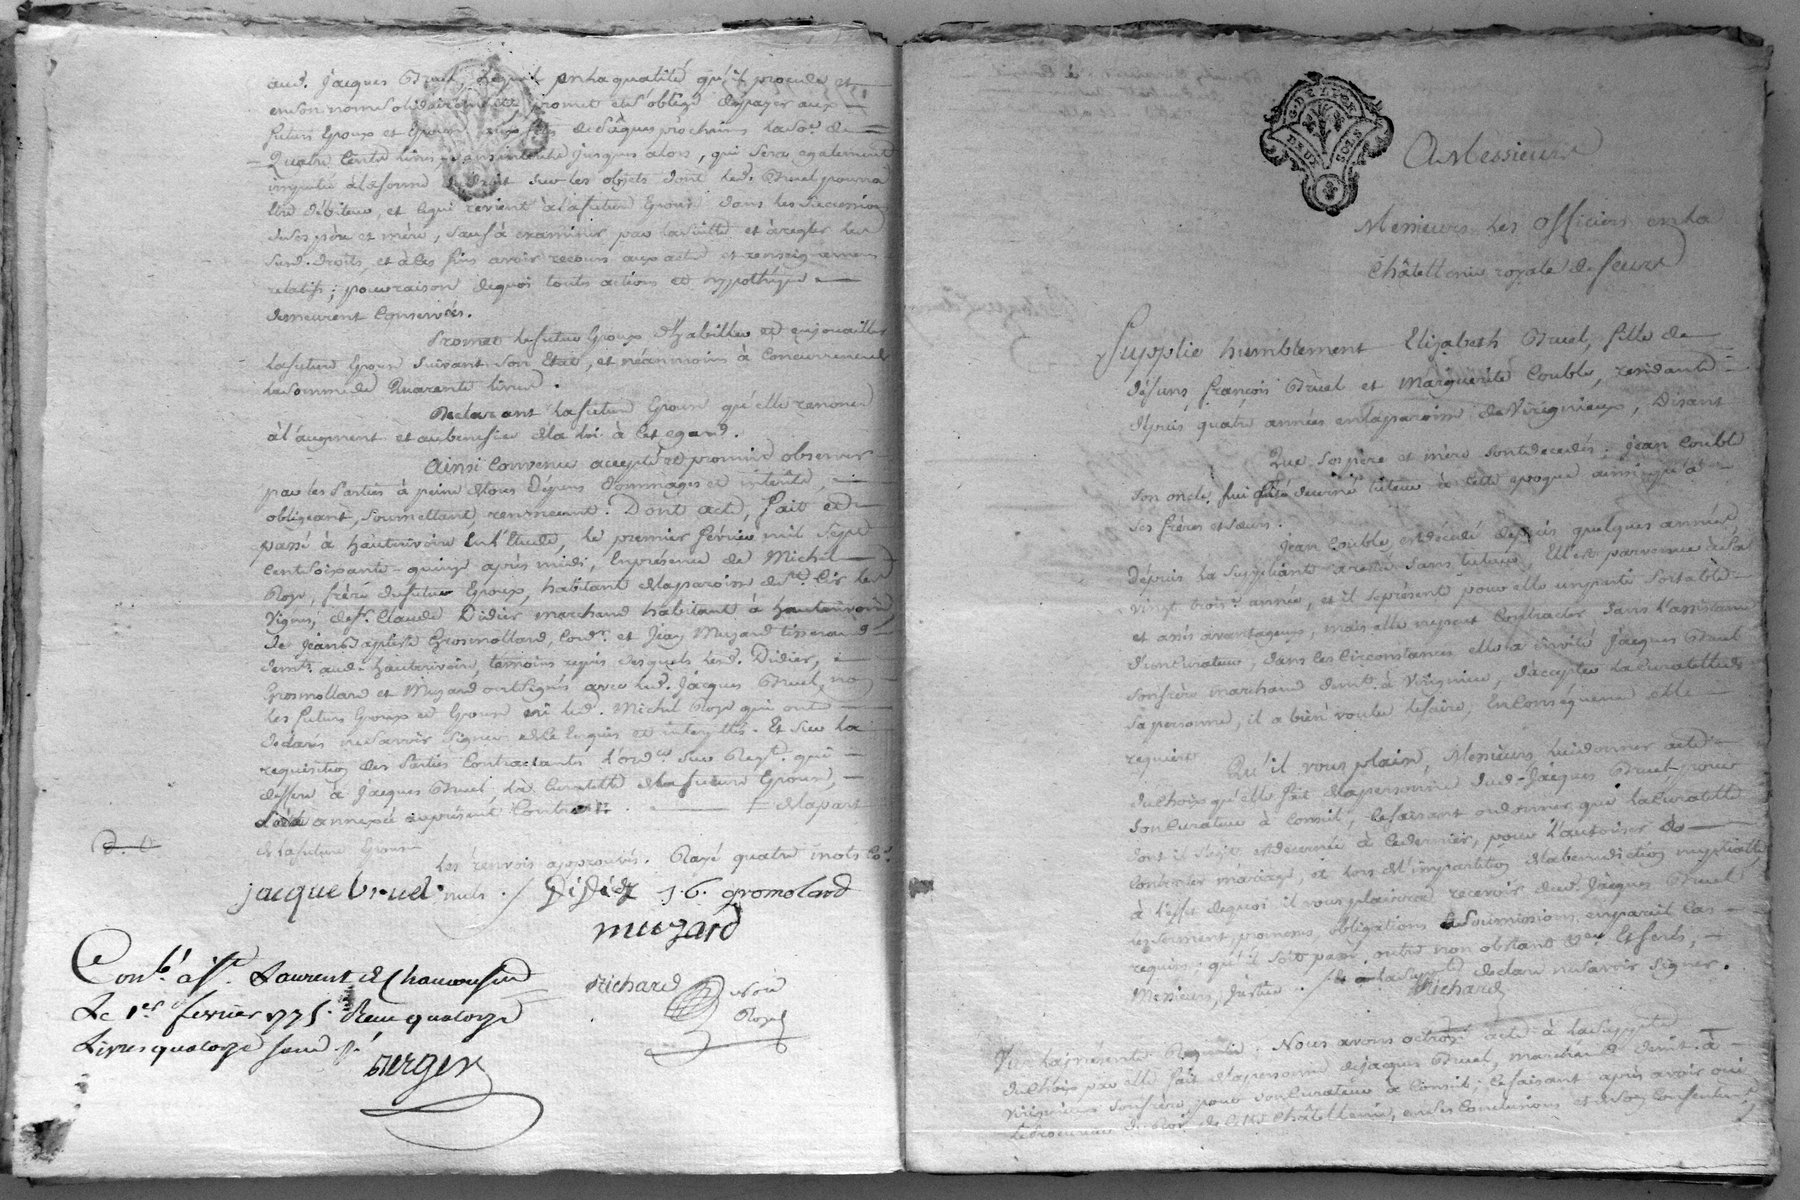 aud. Jacques Bruel, lequel en ta qualité qu'il procede et
en son nom solidairement promet et s'oblige de payer aux
futurs Epoux et Epouse aux fêtes de Pâques prochaines la so.e de
Quatre Cents livres sans interêt jusques alors, qui sera egalement
imputé à la forme du droit sur les objets dont led. Bruel pourra
être débiteur, et de ce qui revient à la future Epouse dans les succession
de ses père et mère, sauf à examiner par la suitte et à regler les
susd. droits, et à les fins avoir recours aux actes et renseignemens
relatifs; pour raison de quoi touts actions et hypothèque
demeurent Conservés.
Promet le futur Epoux d'habiller et enjouailler
la future Epouse suivant son Etat, et néanmoins à Concurrence de
la somme de Quarente livres.
Declarant la future Epouse qu'elle renonce
à l'augment et au benefice de la loi à cet egard.
Ainsi Convenu accepté et promis observer
par les Parties à peine de tous Dépens dommages et interêts,
obligeant, soumettant, renonceant. Dont acte, fait et
passé à hauterivoire En l'Etude, le premier février mil sept
Cent Soixante-quinze après midi, En présence de Michel
Roge, frère du futur Epoux, habitant de la paroisse de St. Cir les
Vignes, de Sr. Claude Didier marchand habitant à hauterivoire,
de Jean Baptiste Grosmollard, Cord.r et Jean Muzard tisserand
demt. aud. hauterivoire, témoins requis desquels lesd. Didier,
Grosmollard et Muzard ont signés avec led. Jacques Bruel, non
les futurs Epoux et Epouse ni led. Michel Roge qui ont
déclarés ne savoir signer de ce Enquis et interpellés. Et sur la
requisition des Parties Contractantes l'ord.ce sur Reqt. qui
deffere à Jacques Bruel la Curatelle de la future Epouse,
a été annexée au présent Contrat de la part
de la future Epouse
les renvois approuvés. Rayé quatre mots Co.
nuls
jacque bruel Didier J. b. gromolard
muzard
Con.lé à St. Laurent de Chamousset
Le 1er fevrier 1775. Reçu quatorze
Livres quatorze sous
Berger
Richard Noir
Roge
G. DE LYON
DEUX SOLS
A Messieurs
Messieurs les officiers en la
Châtellenie royale de feurs
Supplie humblement Elizabeth Bruel, fille de
défunts françois Bruel et Marguerite Couble, residante
depuis quatre années en la paroisse de Virignieux, Disant
Que ses père et mère sont decedés. Jean Couble
son oncle, fut décerné tuteur à cette epoque ainsi qu'à
ses frères et sœurs.
Jean Couble est décédé depuis quelques années,
Depuis la Suppliante a resté sans tuteur, Elle est parvenue à sa
vingt trois.e année, et il se présent pour elle un parti sortable
et assés avantageux, mais elle ne peut Contracter sans l'assistance
d'un Curateur, dans ces Circonstances elle a invité Jacques Bruel
son frère marchand demt. à Virignieu, d'accepter la Curatelle de
sa personne, il a bien voulu le faire, En Conséquence elle
requiert
Qu'il vous plaise, Messieurs, lui donner acte
du Choix qu'elle fait de la personne dud. Jacques Bruel, pour
son Curateur à Conseil, Ce faisant ordonner que la Curatelle
dont il s'agit est decernée à Ce dernier, pour l'autoriser à
Contracter mariage, et lors de l'impartition de la benediction nuptiale,
à l'effet de quoi il vous plaira recevoir dud. Jacques Bruel
les serment, promesses, obligations & soumissions en pareil Cas
requis, qu'il soit passé outre non obstant &ca. Et ferés,
Messieurs, Justice. la Supte. declare ne savoir signer.
Richard
Vu la présente Requête; Nous avons octroyé acte à la Suppte.
du Choix par elle fait de la personne de Jacques Bruel, marchand demt. à
Virignieux son frère, pour son Curateur à Conseil; Ce faisant après avoir oui
le Procureur du Roi de Cette Châtellenie, en ses Conclusions et de son Consentemt.